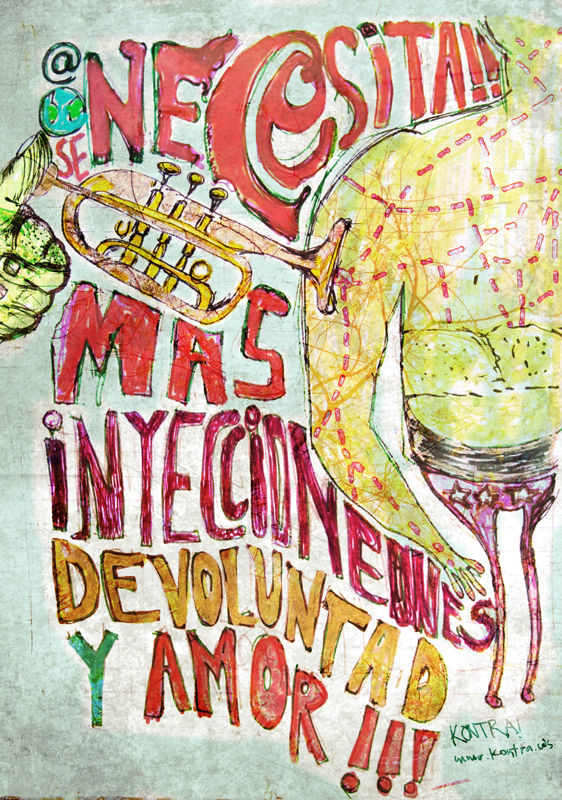 @
SE NECeSiTA!!!
MAS
iNYECCiONES
DEVOLUNTAD
Y AMOR!!!
KONTRA!
www.kontra.ws